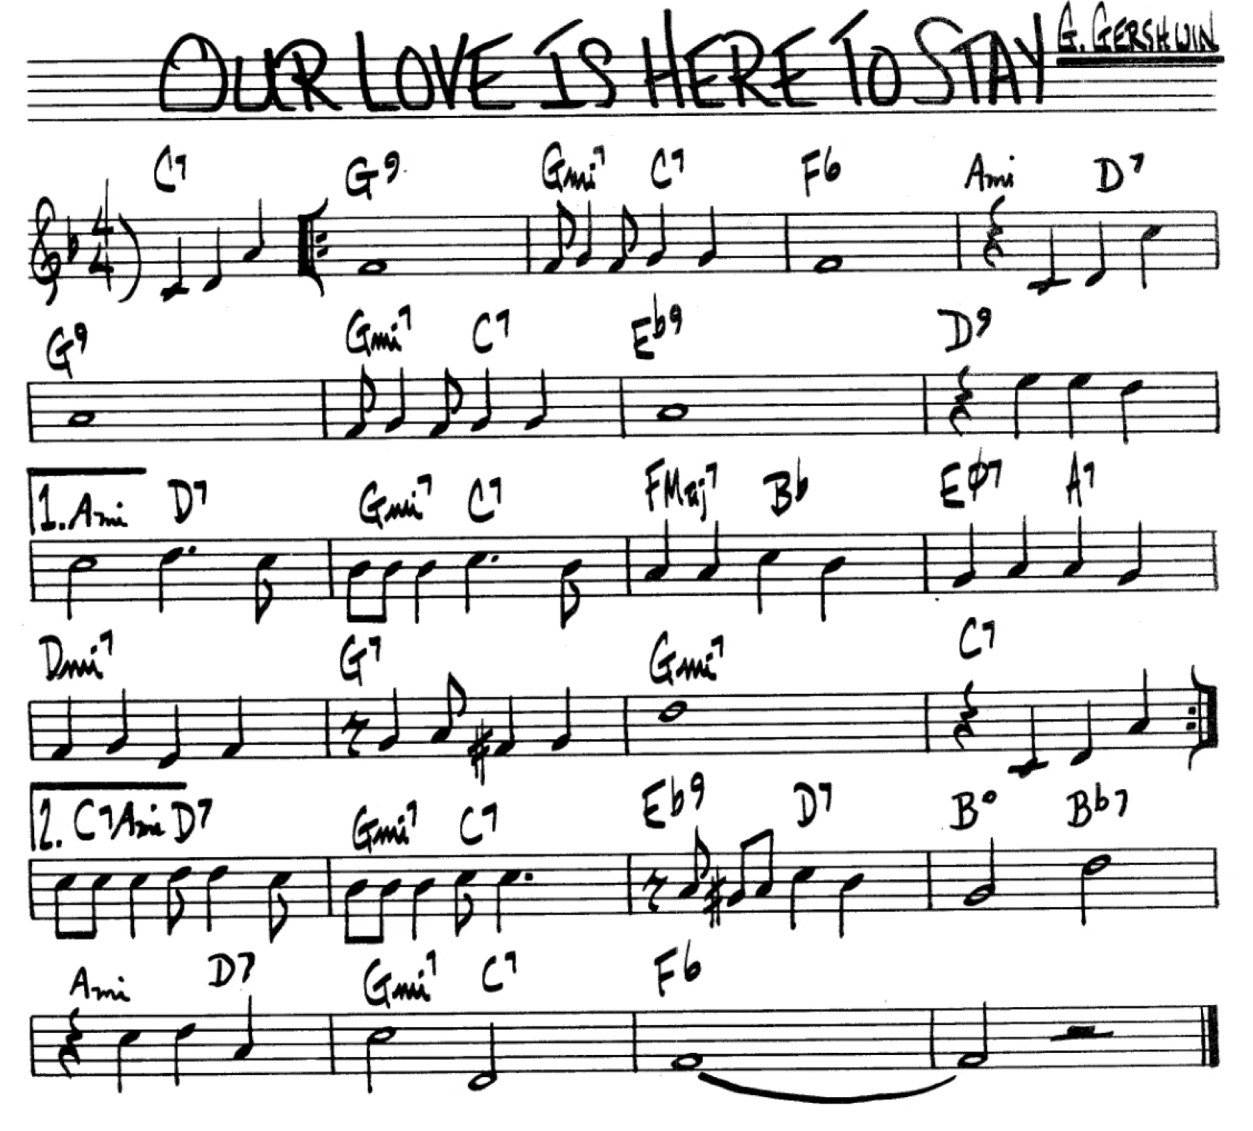 OUR LOVE IS HERE TO STAY G. GERSHWIN
C7 G9 Gmi7 C7 F6 Ami D7
4
4
G9 Gmi7 C7 Eb9 D9
1. Ami D7 Gmi7 C7 FMaj7 Bb EØ7 A7
Dmi7 G7 Gmi7 C7
2. C7 Ami D7 Gmi7 C7 Eb9 D7 B° Bb7
Ami D7 Gmi7 C7 F6